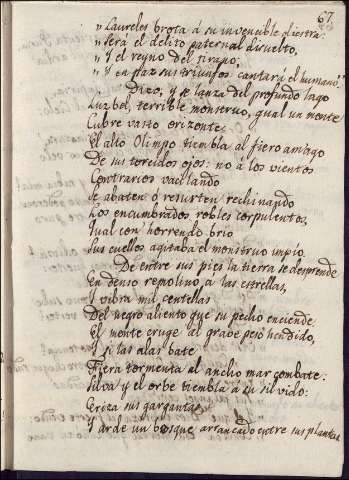 67.
"Laureles brota á su invencible diestra:
"Será el delito paternal disuelto,
"Y el reyno del tirano;
"Y en paz sus triunfos cantará el humano."
Dixo, y se lanza del profundo lago
Luzbel, terrible monstruo, qual un monte
Cubre vasto orizonte:
El alto Olimpo tiembla al fiero amago
De sus torcidos ojos: no á los vientos
Contrarios vacilando
Se abaten ó resurten rechinando
Los encumbrados robles corpulentos,
Qual con horrendo brio
Sus cuellos agitaba el monstruo impío.
De entre sus pies la tierra se desprende
En denso remolino a las estrellas,
Y vibra mil centellas
Del negro aliento que su pecho enciende.
El monte cruge al grave peso hendido,
Y si las alas bate
Fiera tormenta al ancho mar combate:
Silva y el orbe tiembla á su silvido:
Eriza sus gargantas,
Y arde un bosque arrancado entre sus plantas.